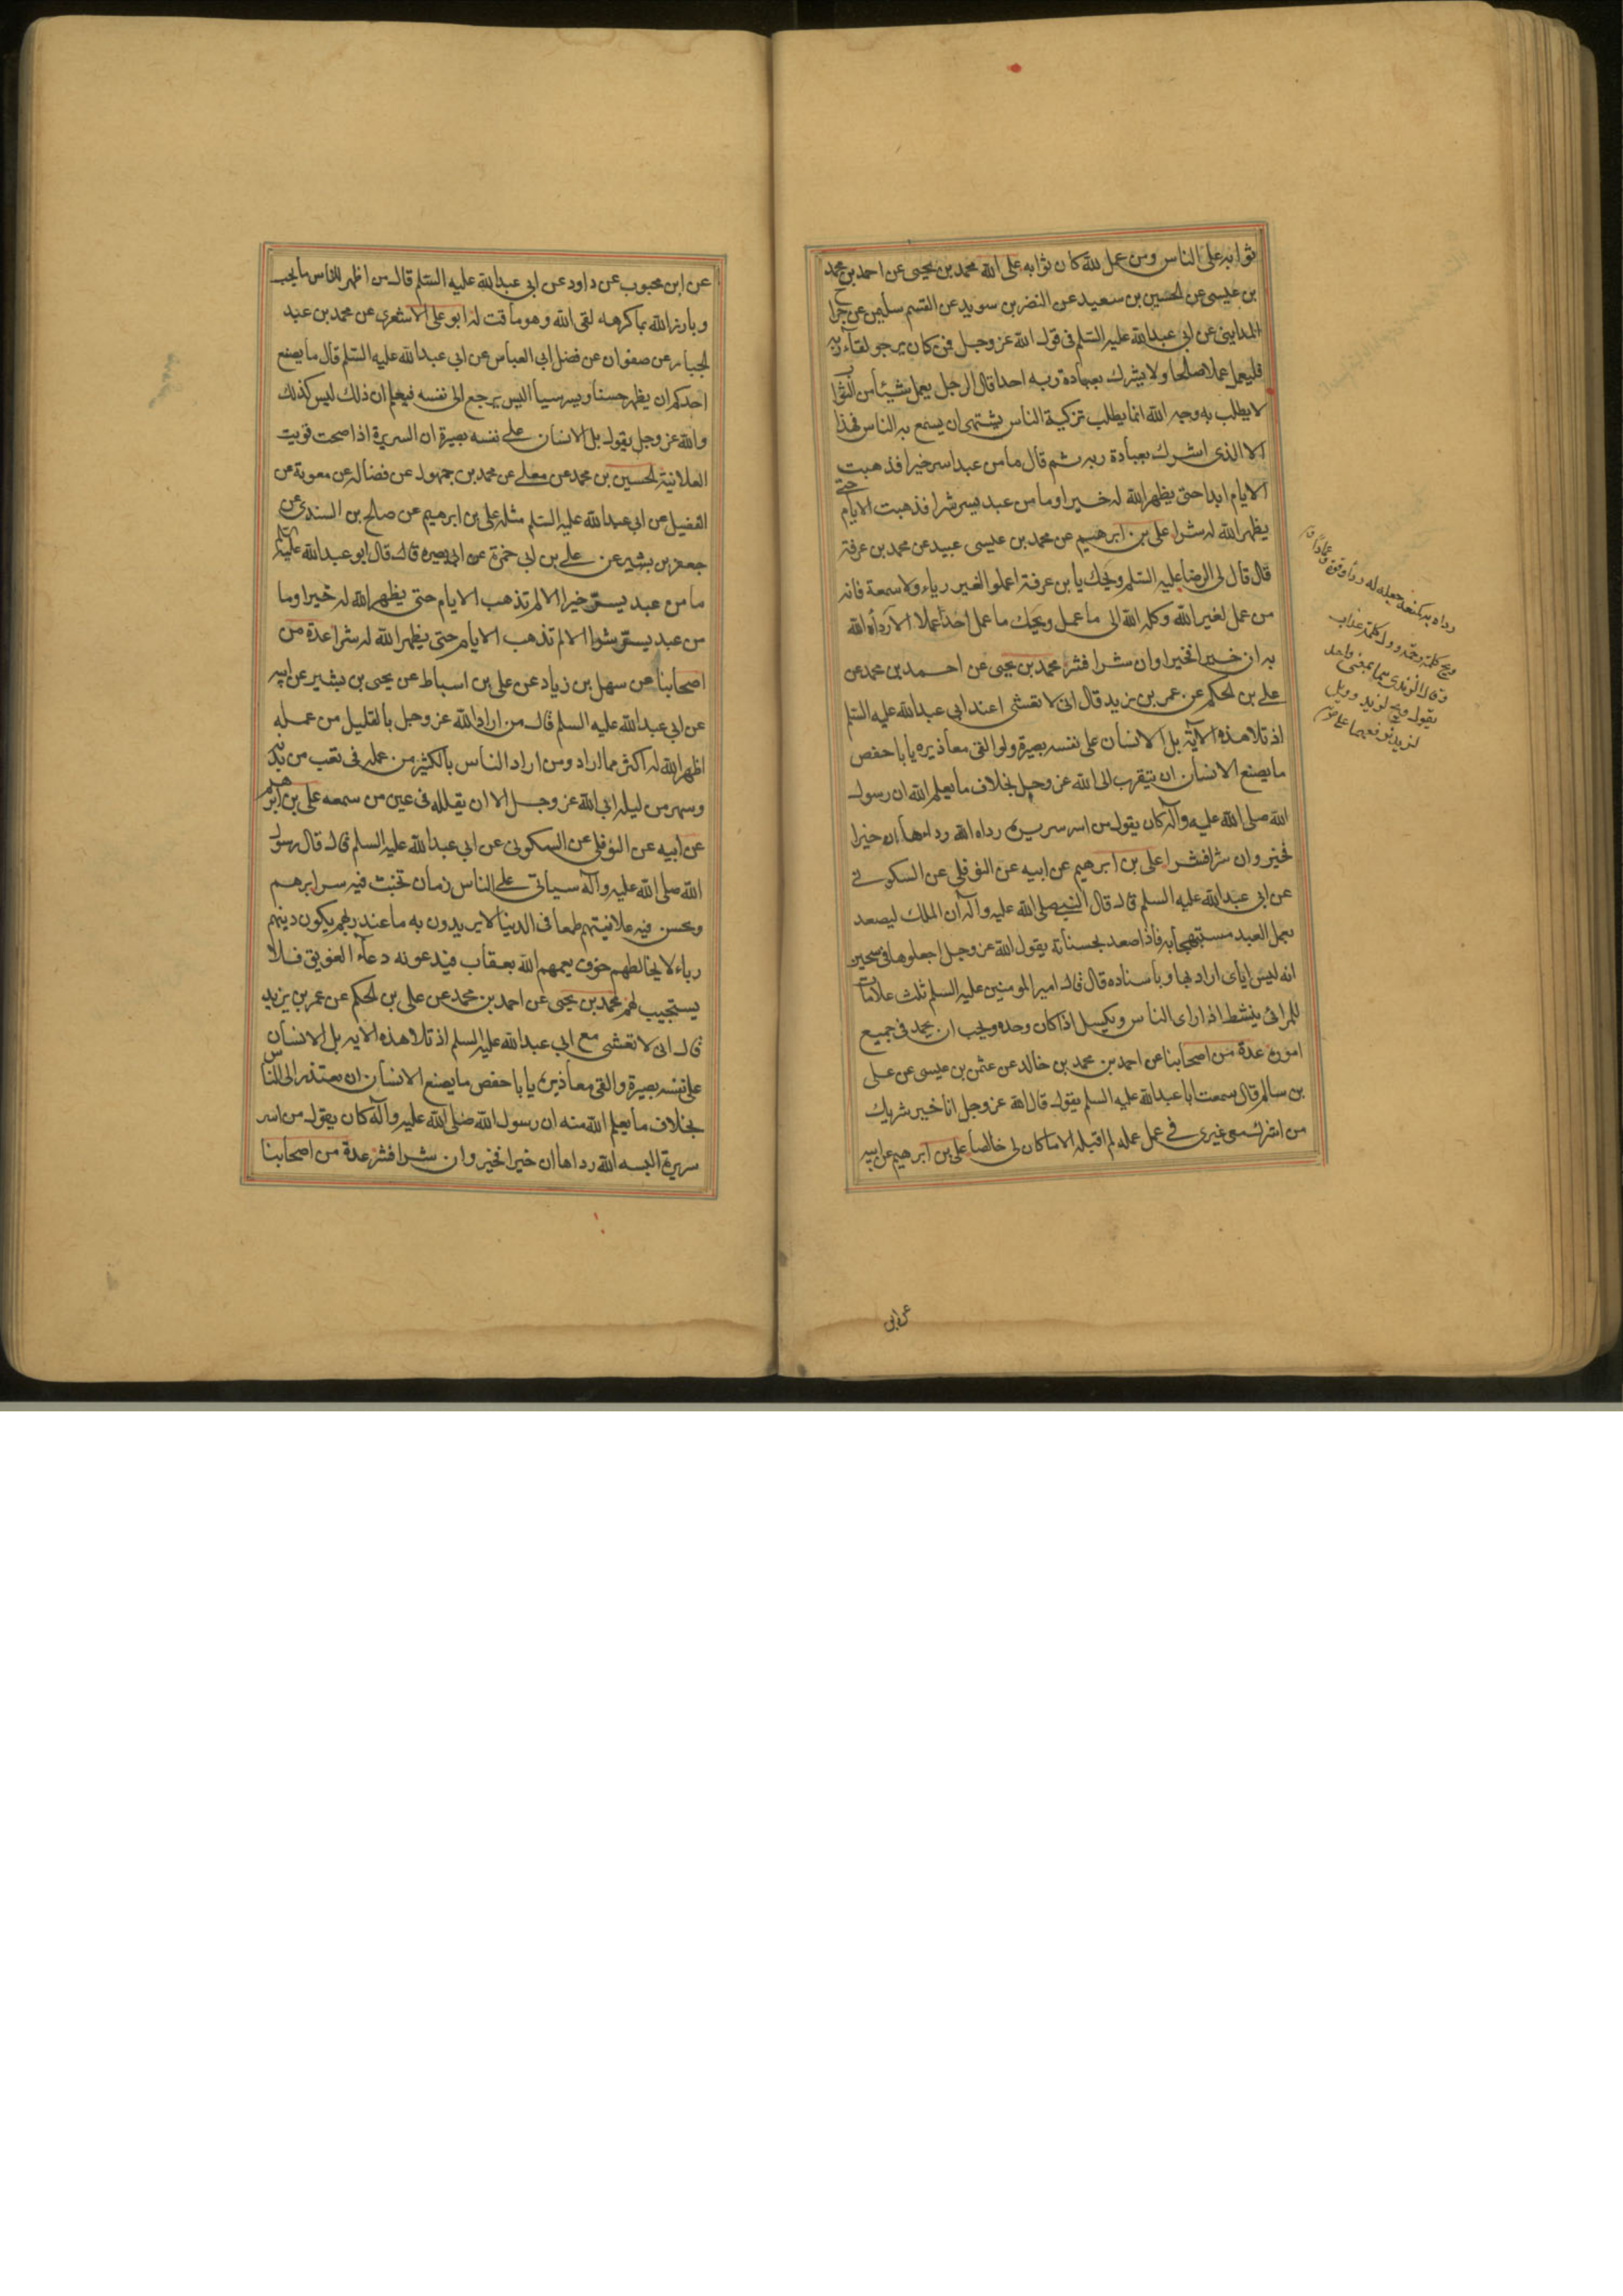 ثوابه على الناس ومن عمل لله كان ثوابه على الله محمد بن يحيى عن احمد بن محمد
بن عيسى عن الحسين بن سعيد عن النضر بن سويد عن القسم سليمن عن جرا
ح المدايني عن ابي عبد الله عليه السلم في قول الله عز وجل فمن كان يرجو لقاء ربه
فليعمل عملا صالحا ولا يشرك بعبادة ربه احدا قال الرجل يعمل شيئا من الثواب
لا يطلب به وجه الله انما يطلب تزكية الناس يشتهي ان يسمع به الناس فهذا
الا الذي اشرك بعبادة ربه ثم قال ما من عبد اسر خيرا فذهبت
الايام ابدا حتى يظهر الله له خيرا وما من عبد يسر شرا فذهبت الايام حتى
يظهر الله له شرا علي بن ابرهيم عن محمد بن عيسى عبيد عن محمد بن عرفة
قال قال لي الرضا عليه السلم ويحك يا بن عرفة اعملوا لغير رياء ولا سمعة فانه
من عمل لغير الله وكله الله الى ما عمل ويحك ما عمل احد عملا الا رداه الله
به ان خيرا فخيرا وان شرا فشر محمد بن يحيى عن احمد بن محمد عن
علي بن الحكم عن عمر بن يزيد قال اني لا تعشى عند ابي عبد الله عليه السلم
اذ تلا هذه الآية بل الانسان على نفسه بصيرة ولو القى معاذيره يا با حفص
ما يصنع الانسان ان يتقرب الى الله عز وجل بخلاف ما يعلم الله ان رسول
الله صلى الله عليه وآله كان يقول من اسر سريرة رداه الله رداءها ان خيرا
فخير وان شرا فشرا علي بن ابرهيم عن ابيه عن النوفلي عن السكوني
عن ابي عبد الله عليه السلم قال قال النبي صلى الله عليه وآله ان الملك ليصعد
بعمل العبد مستبهجا به فاذا صعد بحسناته يقول الله عز وجل اجعلوها في سجين
انه ليس اياي اراد بها وباسناده قال قال امير المومنين عليه السلم ثلث علامات
للمرائي ينشط اذا راى الناس ويكسل اذا كان وحده ويحب ان يحمد في جميع
اموره عدة من اصحابنا عن احمد بن محمد بن خالد عن عثمن بن عيسى عن علي
بن سالم قال سمعت ابا عبد الله عليه السلم يقول قال الله عز وجل انا خير شريك
من اشرك معي غيري في عمل عمله لم اقبله الا ما كان لي خالصا علي بن ابرهيم عن ابيه
ويح كلمة رحمة وويل كلمة عذاب
وقال اليزيدي هما بمعنى واحد
يقول ويح لزيد وويل
لزيد ترفعهما
عن ابن
عن ابن محبوب عن داود عن ابي عبد الله عليه السلم قال من اظهر للناس ما يحب
وبارز الله بما كرهه لقى الله وهو ماقت له ابو علي الاشعري عن محمد بن عبد
الجبار عن صفوان عن فضل ابي العباس عن ابي عبد الله عليه السلم قال ما يصنع
احدكم ان يظهر حسنا ويسر سيأ اليس يرجع الى نفسه فيعلم ان ذلك ليس كذلك
والله عز وجل يقول بل الانسان على نفسه بصيرة ان السريرة اذا صحت قويت
العلانية الحسين بن محمد عن معلى عن محمد بن جمهور عن فضاله عن معوية عن
الفضيل عن ابي عبد الله عليه السلم مثله علي بن ابرهيم عن صالح بن السندي عن
جعفر بن بشير عن علي بن ابي حمزة عن ابي بصير قال قال ابو عبد الله عليه السلم
ما من عبد يسر خيرا الا لم تذهب الايام حتى يظهر الله له خيرا وما
من عبد يسر شرا الا لم تذهب الايام حتى يظهر الله له شرا عدة من
اصحابنا عن سهل بن زياد عن علي بن اسباط عن يحيى بن بشير عن ابيه
عن ابي عبد الله عليه السلم قال من اراد الله عز وجل بالقليل من عمله
اظهر الله له اكثر مما اراد ومن اراد الناس بالكثير من عمله في تعب من بدنه
وسهر من ليله ابى الله عز وجل الا ان يقلله في عين من سمعه علي بن ابرهيم
عن ابيه عن النوفلي عن السكوني عن ابي عبد الله عليه السلم قال قال رسول
الله صلى الله عليه وآله سياتي على الناس زمان تخبث فيه سرايرهم
وتحسن فيه علانيتهم طمعا في الدنيا لا يريدون به ما عند ربهم يكون دينهم
رياء لا يخالطهم خوف يعمهم الله بعقاب فيدعونه دعاء الغريق فلا
يستجيب لهم محمد بن يحيى عن احمد بن محمد عن علي بن الحكم عن عمر بن يزيد
قال اني لا تعشى مع ابي عبد الله عليه السلم اذ تلا هذه الايه بل الانسان
على نفسه بصيرة ولو القى معاذيره يا با حفص ما يصنع الانسان ان يعتذر الى الناس
بخلاف ما يعلم الله منه ان رسول الله صلى الله عليه وآله كان يقول من اسر
سريرة البسه الله رداها ان خيرا فخير وان شرا فشر عدة من اصحابنا